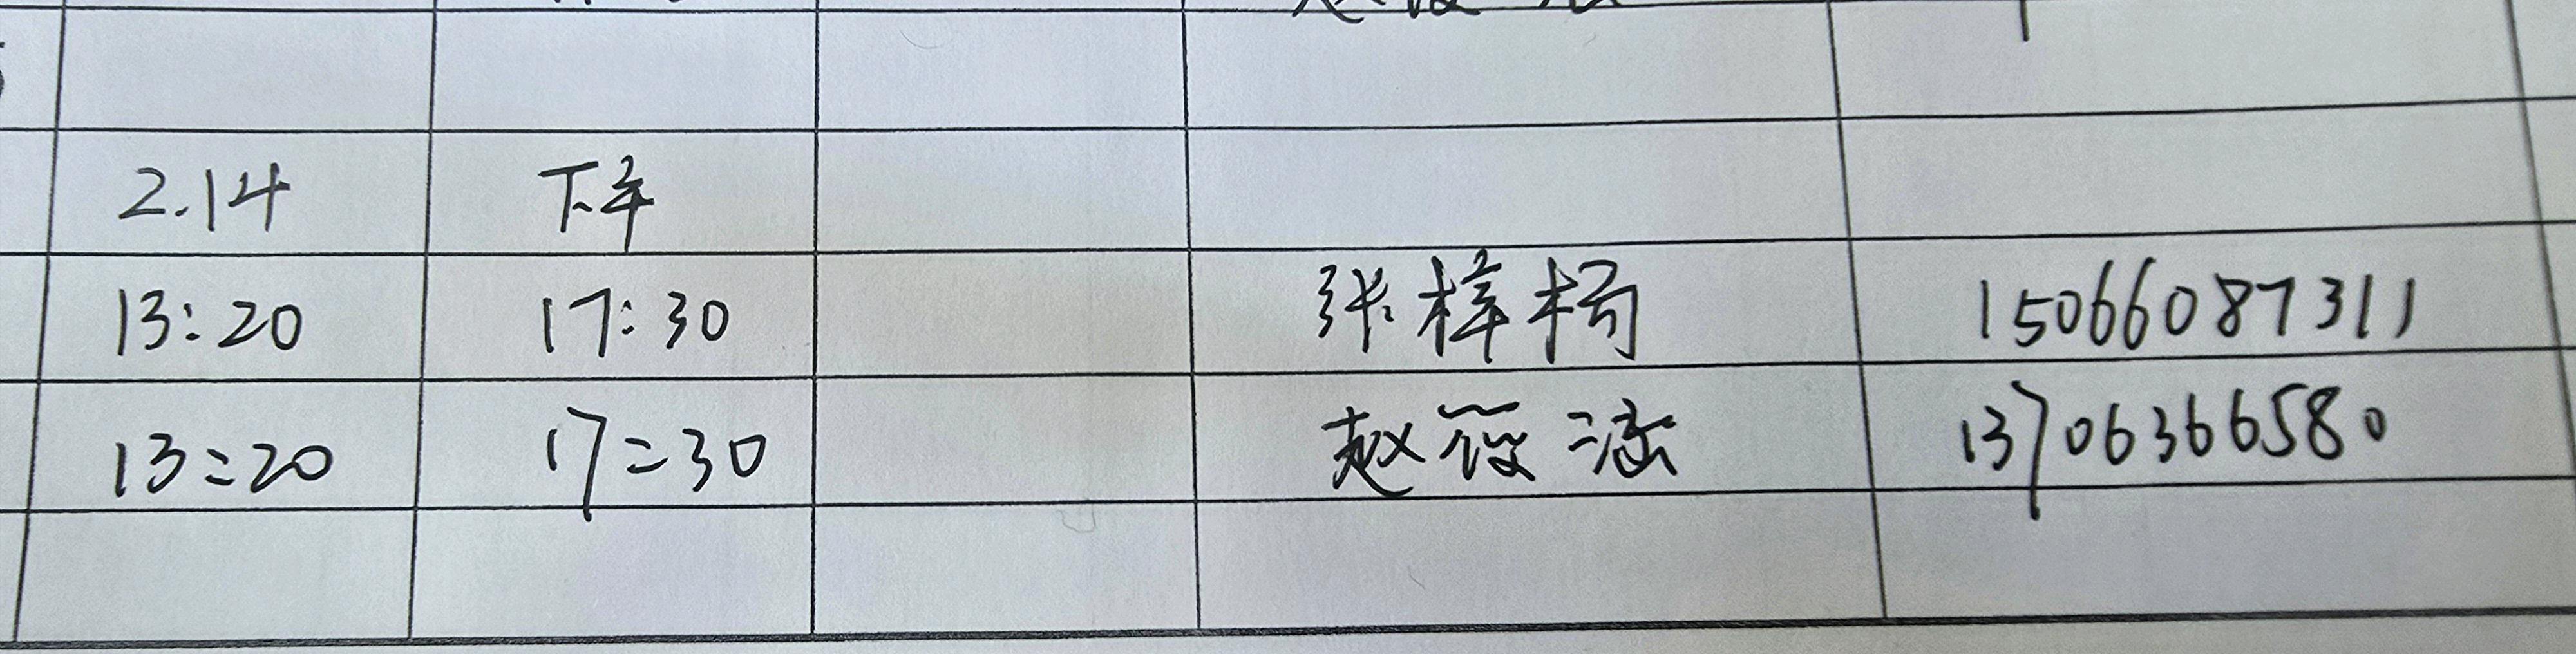 2.14 下午
13:20 17:30 张梓杨 15066087311
13:20 17:30 赵筱涵 13706366580